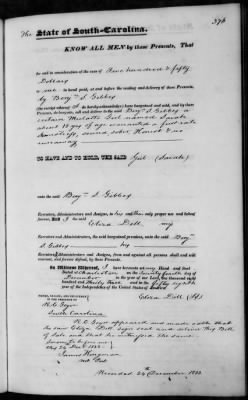 The State of South-Carolina. 376
KNOW ALL MEN by these Presents, That
for and in consideration of the sum of Five hundred & fifty
Dollars
to me in hand paid, at and before the sealing and delivery of these Presents,
by Benjn. S. Gibbes
(the receipt whereof I do hereby acknowledge) have bargained and sold, and by these
Presents, do bargain, sell and deliver to the said Benjn. S. Gibbes a
certain Mulatto Girl named Sarah
about 18 yrs of age warranted a first rate
Seamstress, sound, sober, Honest & no
runaway
TO HAVE AND TO HOLD, THE SAID Girl (Sarah)
unto the said Benjn. S. Gibbes
Executors, Administrators and Assigns, to his and their only proper use and behoof
forever. And I the said Eliza Dell my
Executors and Administrators, the said bargained premises, unto the said Benjn.
S. Gibbes his
Executors, Administrators and Assigns, from and against all persons shall and will
warrant, and forever defend, by these Presents.
In Witness Whereof, I have hereunto set my Hand and Seal
Dated at Charleston on the Twenty fourth day of
December in the year of our Lord, one thousand eight
hundred and thirty three and in the fifty eighth
year of the Independence of the United States of America
SIGNED, SEALED, AND DELIVERED
IN THE PRESENCE OF Eliza Dell (LS)
South Carolina
appeared and made oath that
he saw Eliza Dell sign seal and deliver this Bill
of Sale and that he witnessed the same
Sworn to before me
this 24 Decr. 1833
Not. Pub.
Recorded 24th December 1833